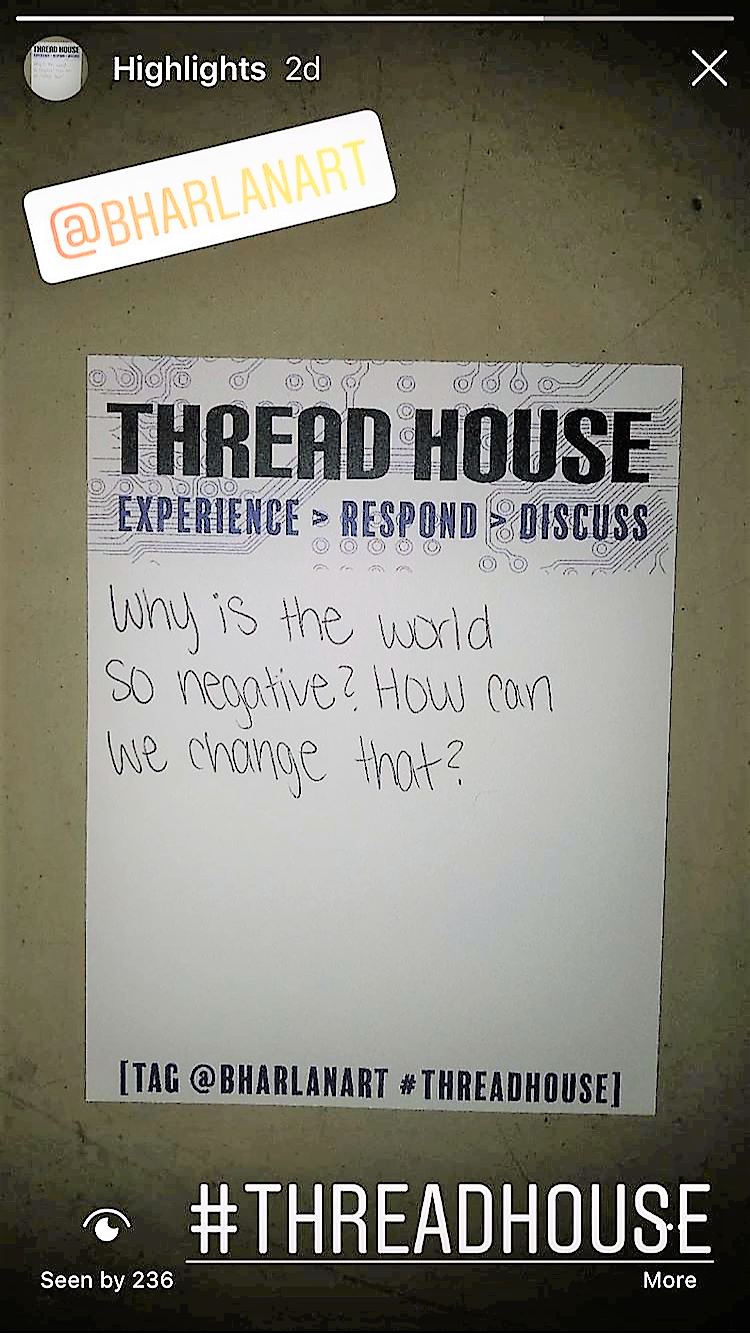 THREAD HOUSE
Highlights 2d
@BHARLANART
THREAD HOUSE
EXPERIENCE > RESPOND > DISCUSS
Why is the world
so negative? How can
we change that?
[TAG @BHARLANART #THREADHOUSE]
#THREADHOUSE
Seen by 236
More